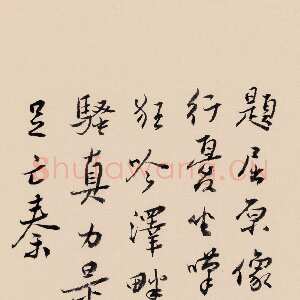 題屈原像
行憂坐嘆
狂吟澤畔
騷真力
足亡秦